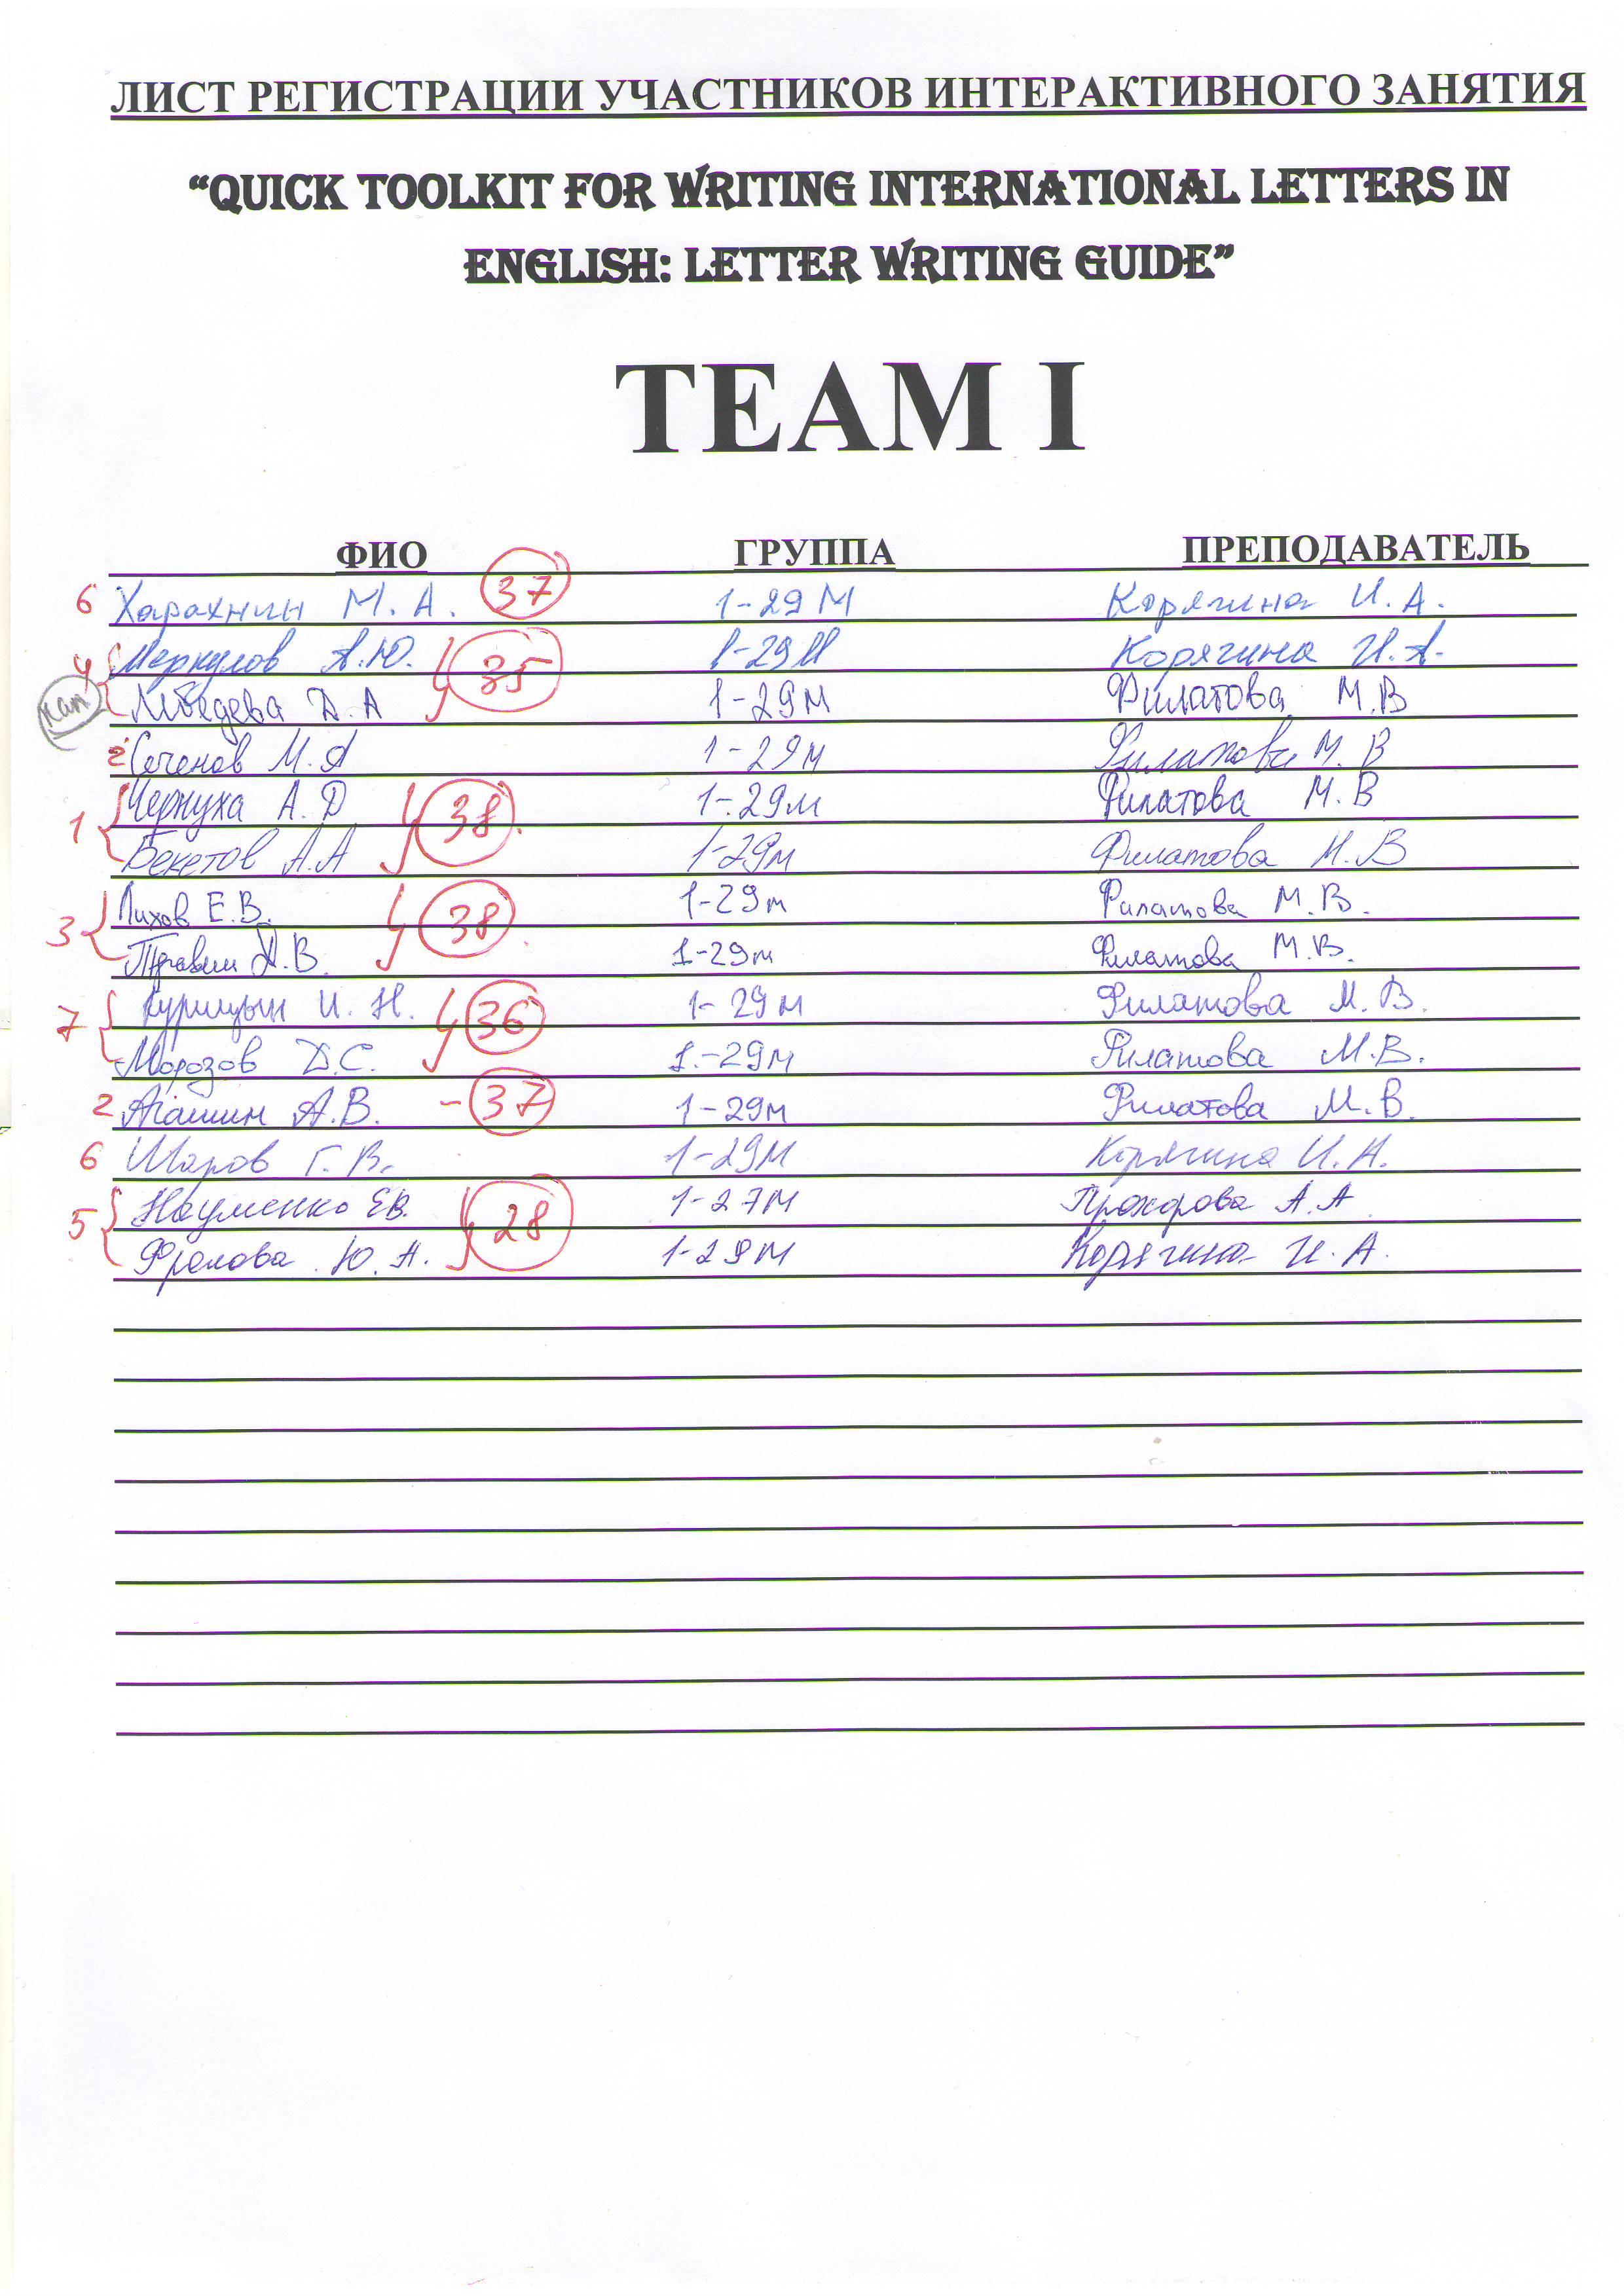 ЛИСТ РЕГИСТРАЦИИ УЧАСТНИКОВ ИНТЕРАКТИВНОГО ЗАНЯТИЯ
“QUICK TOOLKIT FOR WRITING INTERNATIONAL LETTERS IN
ENGLISH: LETTER WRITING GUIDE”
TEAM I
ФИО ГРУППА ПРЕПОДАВАТЕЛЬ
6 Харахнин М. А. 37 1-29М Корягина И. А.
4 Меркулов А.Ю. 35 1-29М Корягина И.А.
кап Лебедева Д. А 1-29М Филатова М.В
2 Сеченов М. А 1-29м Филатова М. В
1 Чернуха А. Д 38 1-29м Филатова М. В
Бекетов А.А 1-29м Филатова М. В
3 Лихов Е.В. 38 1-29м Филатова М. В.
Травин А.В. 1-29м Филатова М.В.
7 Курицын И. Н. 36 1-29м Филатова М. В.
Морозов Д.С. 1-29м Филатова М.В.
2 Агашин А.В. - 37 1-29м Филатова М. В.
6 Шаров Г. В. 1-29М Корягина И. А.
5 Науменко Е.В. 28 1-27М Прохорова А. А
Фролова Ю. А. 1-29М Корягина И. А.